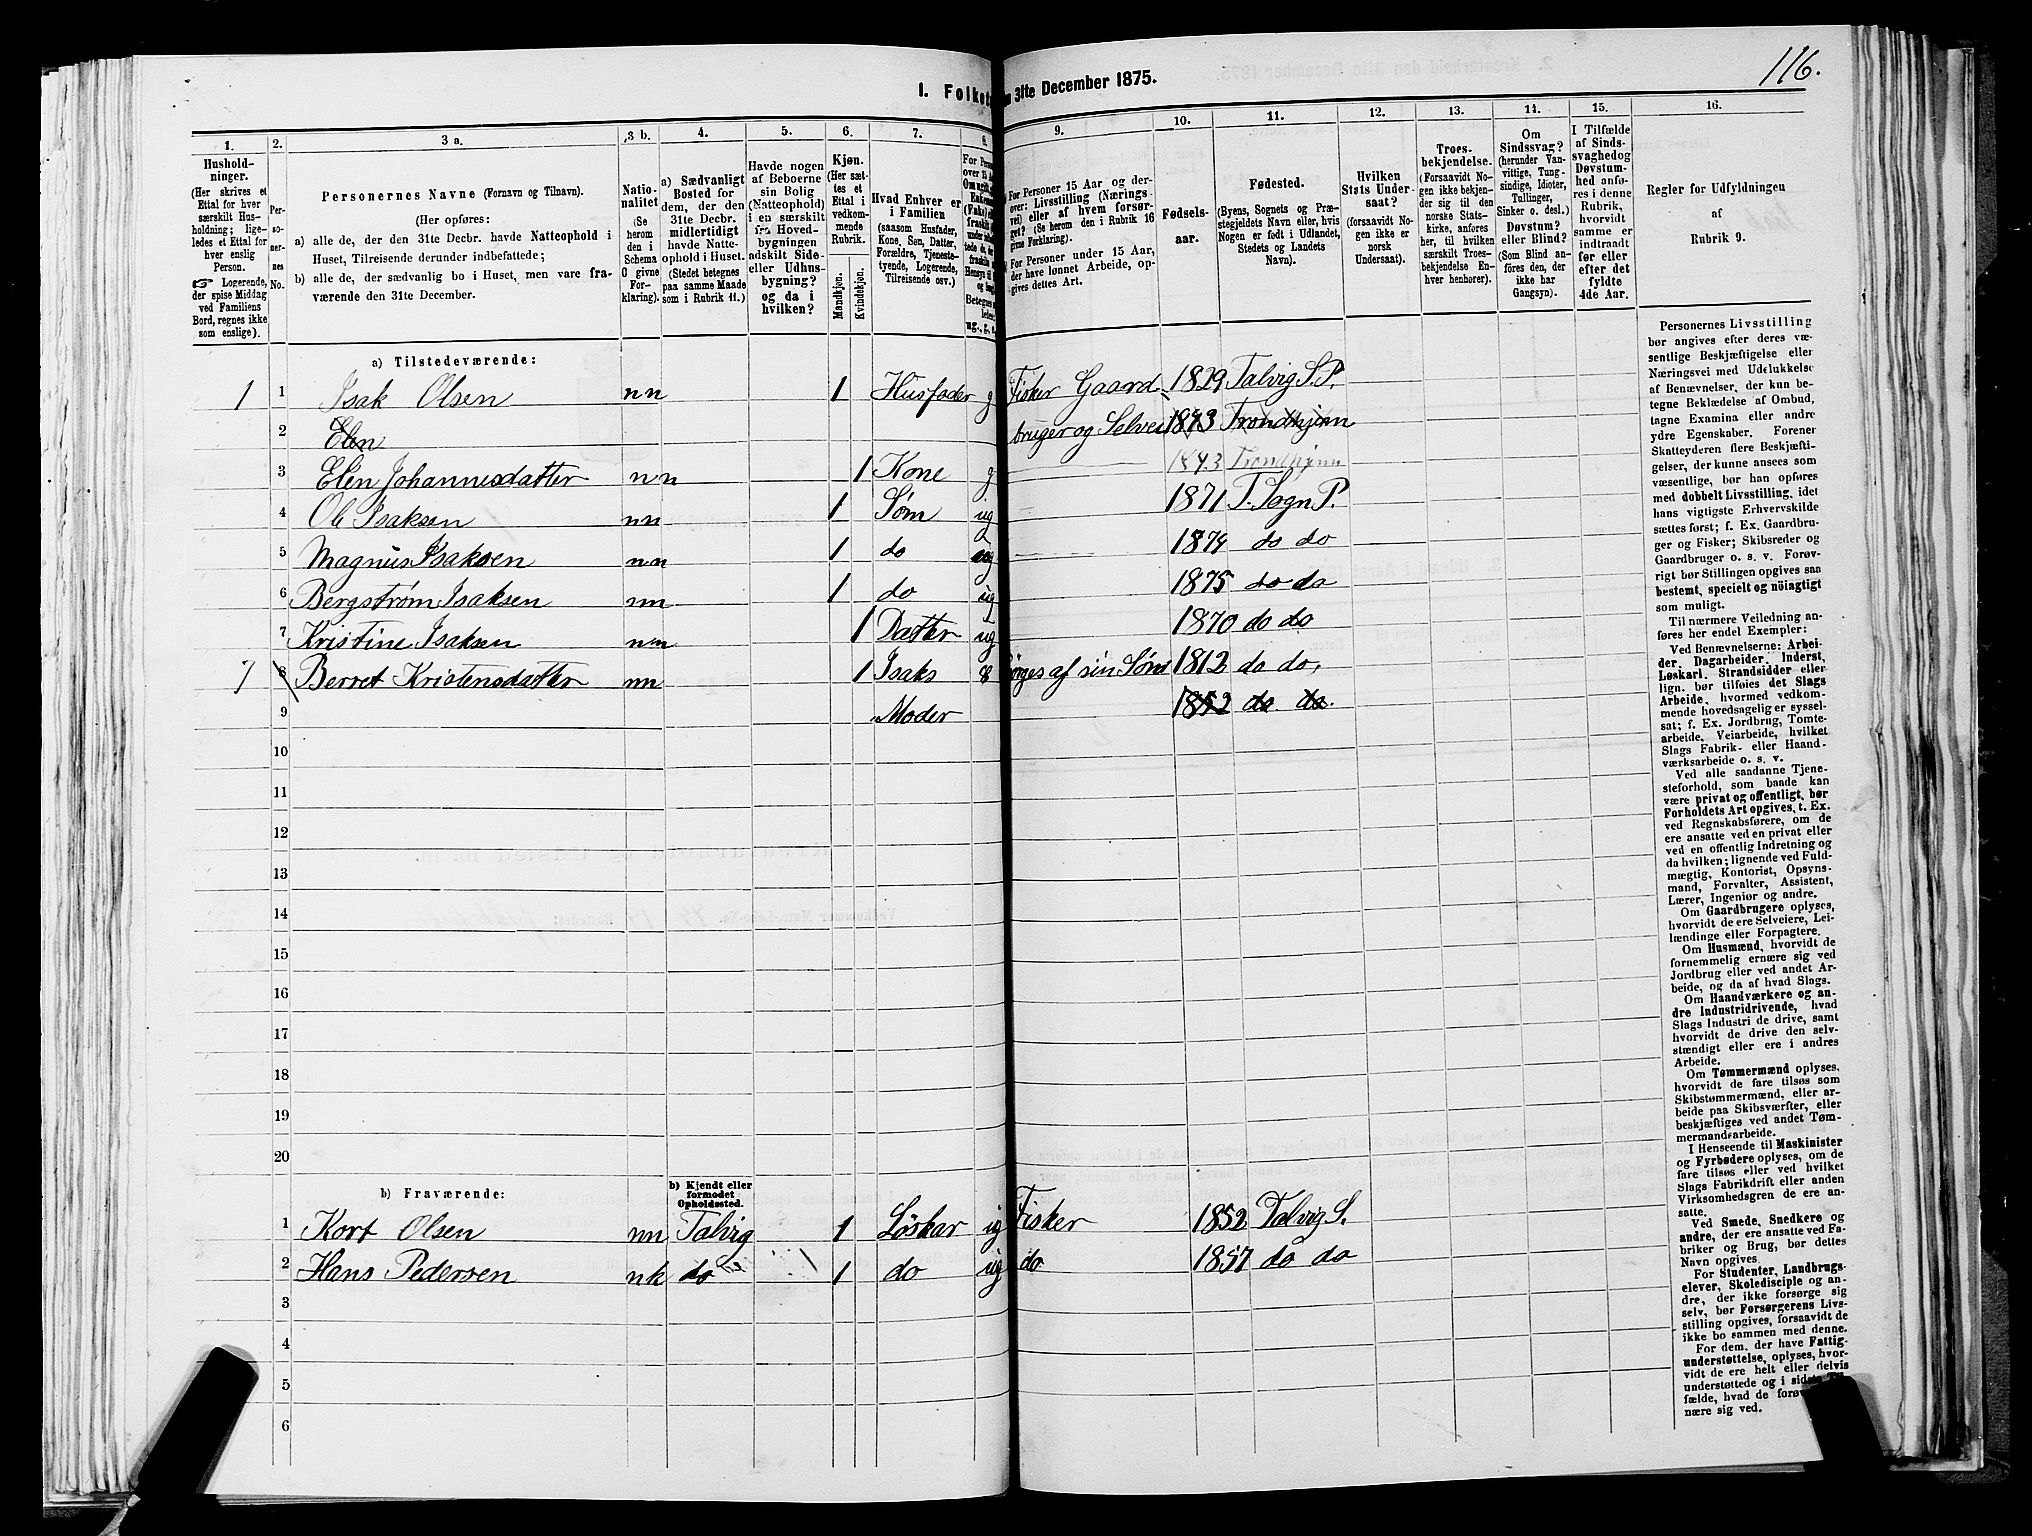 116.
I. Folket
31te December 1875.
1.
2.
3 a.
3 b.
4.
5.
6.
7.
8.
9.
10.
11.
12.
13.
14.
15.
16.
Hushold-
ninger.
(Her skrives et
Ettal for hver
særskilt Hus-
holdning; lige-
ledes et Ettal for
hver enslig
Person.
☞ Logerende,
der spise Middag
ved Familiens
Bord, regnes ikke
som enslige).
Per-
so-
ner-
nes
No.
Personernes Navne (Fornavn og Tilnavn).
(Her opføres:
a) alle de, der den 31te Decbr. havde Natteophold i
Huset, Tilreisende derunder indbefattede;
b) alle de, der sædvanlig bo i Huset, men vare fra-
værende den 31te December.
Natio-
nalitet
(Se
herom
den i
Schema
O givne
For-
klaring).
a) Sædvanligt
Bosted for
dem, der den
31te Decbr.
midlertidigt
havde Natte-
ophold i Huset.
(Stedet betegnes
paa samme Maade
som i Rubrik 11.)
Havde nogen
af Beboerne
sin Bolig
(Natteophold)
i en særskilt
fra Hoved-
bygningen
adskilt Side-
eller Udhus-
bygning?
og da i
hvilken?
Kjøn.
(Her sæt-
tes et
Ettal i
vedkom-
mende
Rubrik.
Mandkjøn.
Kvindekjøn.
Hvad Enhver er
i Familien
(saasom Husfader,
Kone, Søn, Datter,
Forældre, Tjeneste-
tyende, Logerende,
Tilreisende osv.)
For Personer 15 Aar og der-
over: Livsstilling (Nærings-
vei) eller af hvem forsør-
get? (Se herom den i Rubrik 16
givne Forklaring).
For Personer under 15 Aar,
der have lønnet Arbeide, op-
gives dettes Art.
Fødsels-
aar.
Fødested.
(Byens, Sognets og Præ-
stegjeldets Navn eller, hvis
Nogen er født i Udlandet,
Stedets og Landets
Navn).
Hvilken
Stats Under-
saat?
(forsaavidt No-
gen ikke er
norsk
Undersaat).
Troes-
bekjendelse.
(Forsaavidt No-
gen ikke bekjen-
der sig til den
norske Stats-
kirke, anføres
her, til hvilken
særskilt Troes-
bekjendelse En-
hver henhører).
Om
Sindssvag?
(herunder Van-
vittige, Tung-
sindige, Idioter,
Tullinger,
Sinker o. desl.)
Døvstum?
eller Blind?
(Som Blind an-
føres den, der
ikke har
Gangsyn).
I Tilfælde
af Sinds-
svaghed og
Døvstum-
hed anfø-
res i denne
Rubrik,
hvorvidt
samme er
indtraadt
før eller
efter det
fyldte
4de Aar.
Regler for Udfyldningen
af
Rubrik 9.
a) Tilstedeværende:
1 1 Isak Olsen nn 1 Husfader g Fisker Gaard 1829 Talvig S. P.
2 Elen bruger og Selvei 1843 Trondhjem
3 Elen Johannesdatter nn 1 Kone g 1843 Trondhjem
4 Ole Isaksen nn 1 Søm ug 1871 T. Sogn P.
5 Magnus Isaksen nn 1 do ug 1874 do do
6 Bergstrøm Isaksen nn 1 do ug 1875 do do
7 Kristine Isaksen nn 1 Datter ug 1870 do do
8 Berret Kristensdatter nn 1 Isaks sørges af sin Søn 1812 do do,
9 Moder 1852 do do.
10
11
12
13
14
15
16
17
18
19
20
b) Fraværende:
b) Kjendt eller
formodet
Opholdssted.
1 Kort Olsen nn Talvig 1 Løskar ug Fisker 1852 Talvig S.
2 Hans Pedersen nk do 1 do ug do 1857 do do
3
4
5
6
Personernes Livsstilling
bør angives efter deres væ-
sentlige Beskjæftigelse eller
Næringsvei med Udelukkelse
af Benævnelser, der kun be-
tegne Beklædelse af Ombud,
tagne Examina eller andre
ydre Egenskaber. Forener
Skatteyderen flere Beskjæfti-
gelser, der kunne ansees som
væsentlige, bør han opføres
med dobbelt Livsstilling, idet
hans vigtigste Erhvervskilde
sættes først; f. Ex. Gaardbru-
ger og Fisker; Skibsreder og
Gaardbruger o. s. v. Forøv-
rigt bør Stillingen opgives saa
bestemt, specielt og nøiagtigt
som muligt.
Til nærmere Veiledning an-
føres her endel Exempler:
Ved Benævnelserne: Arbei-
der, Dagarbeider, Inderst,
Løskarl, Strandsidder eller
lign. bør tilføies det Slags
Arbeide, hvormed vedkom-
mende hovedsagelig er syssel-
sat; f. Ex. Jordbrug, Tomte-
arbeide, Veiarbeide, hvilket
Slags Fabrik- eller Haand-
værksarbeide o. s. v.
Ved alle saadanne Tjene-
steforhold, som baade kan
være privat og offentligt, bør
Forholdets Art opgives, t. Ex.
ved Regnskabsførere, om de
ere ansatte ved en privat eller
ved en offentlig Indretning og
da hvilken; lignende ved Fuld-
mægtig, Kontorist, Opsyns-
mand, Forvalter, Assistent,
Lærer, Ingeniør og andre.
Om Gaardbrugere oplyses,
hvorvidt de ere Selveiere, Lei-
lændinge eller Forpagtere.
Om Husmænd, hvorvidt de
fornemmelig ernære sig ved
Jordbrug eller ved andet Ar-
beide, og da af hvad Slags.
Om Haandværkere og an-
dre Industridrivende, hvad
Slags Industri de drive, samt
hvorvidt de drive den selv-
stændigt eller ere i andres
Arbeide.
Om Tømmermænd oplyses,
hvorvidt de fare tilsøs som
Skibstømmermænd, eller ar-
beide paa Skibsværfter, eller
beskjæftiges ved andet Tøm-
mermandsarbeide.
I Henseende til Maskinister
og Fyrbødere oplyses, om de
fare tilsøs eller ved hvilket
Slags Fabrikdrift eller anden
Virksomhedsgren de ere an-
satte.
Ved Smede, Snedkere og
andre, der ere ansatte ved Fa-
briker og Brug, bør dettes
Navn opgives.
For Studenter, Landbrugs-
elever, Skoledisciple og an-
dre, der ikke forsørge sig
selv, bør Forsørgerens Livs-
stilling opgives, forsaavidt de
ikke bo sammen med denne.
For dem, der have Fattig-
understøttelse, oplyses, hvor-
vidt de ere helt eller delvis
understøttede og i sidste Til-
fælde, hvad de forøv
nære sig ved.